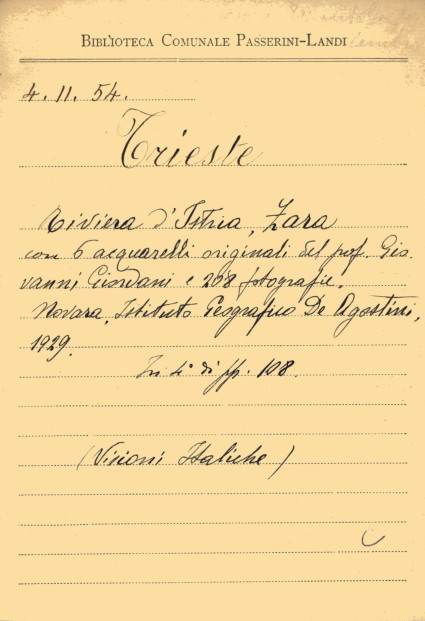 BIBLIOTECA COMUNALE PASSERINI-LANDI
4. 11. 54.
Trieste
Riviera d'Istria, Zara
con 6 acquarelli originali del prof. Gio-
vanni Giordani e 208 fotografie.
Novara, Istituto Geografico De Agostini,
1929.
In 4° di pp. 108.
(Visioni Italiche)